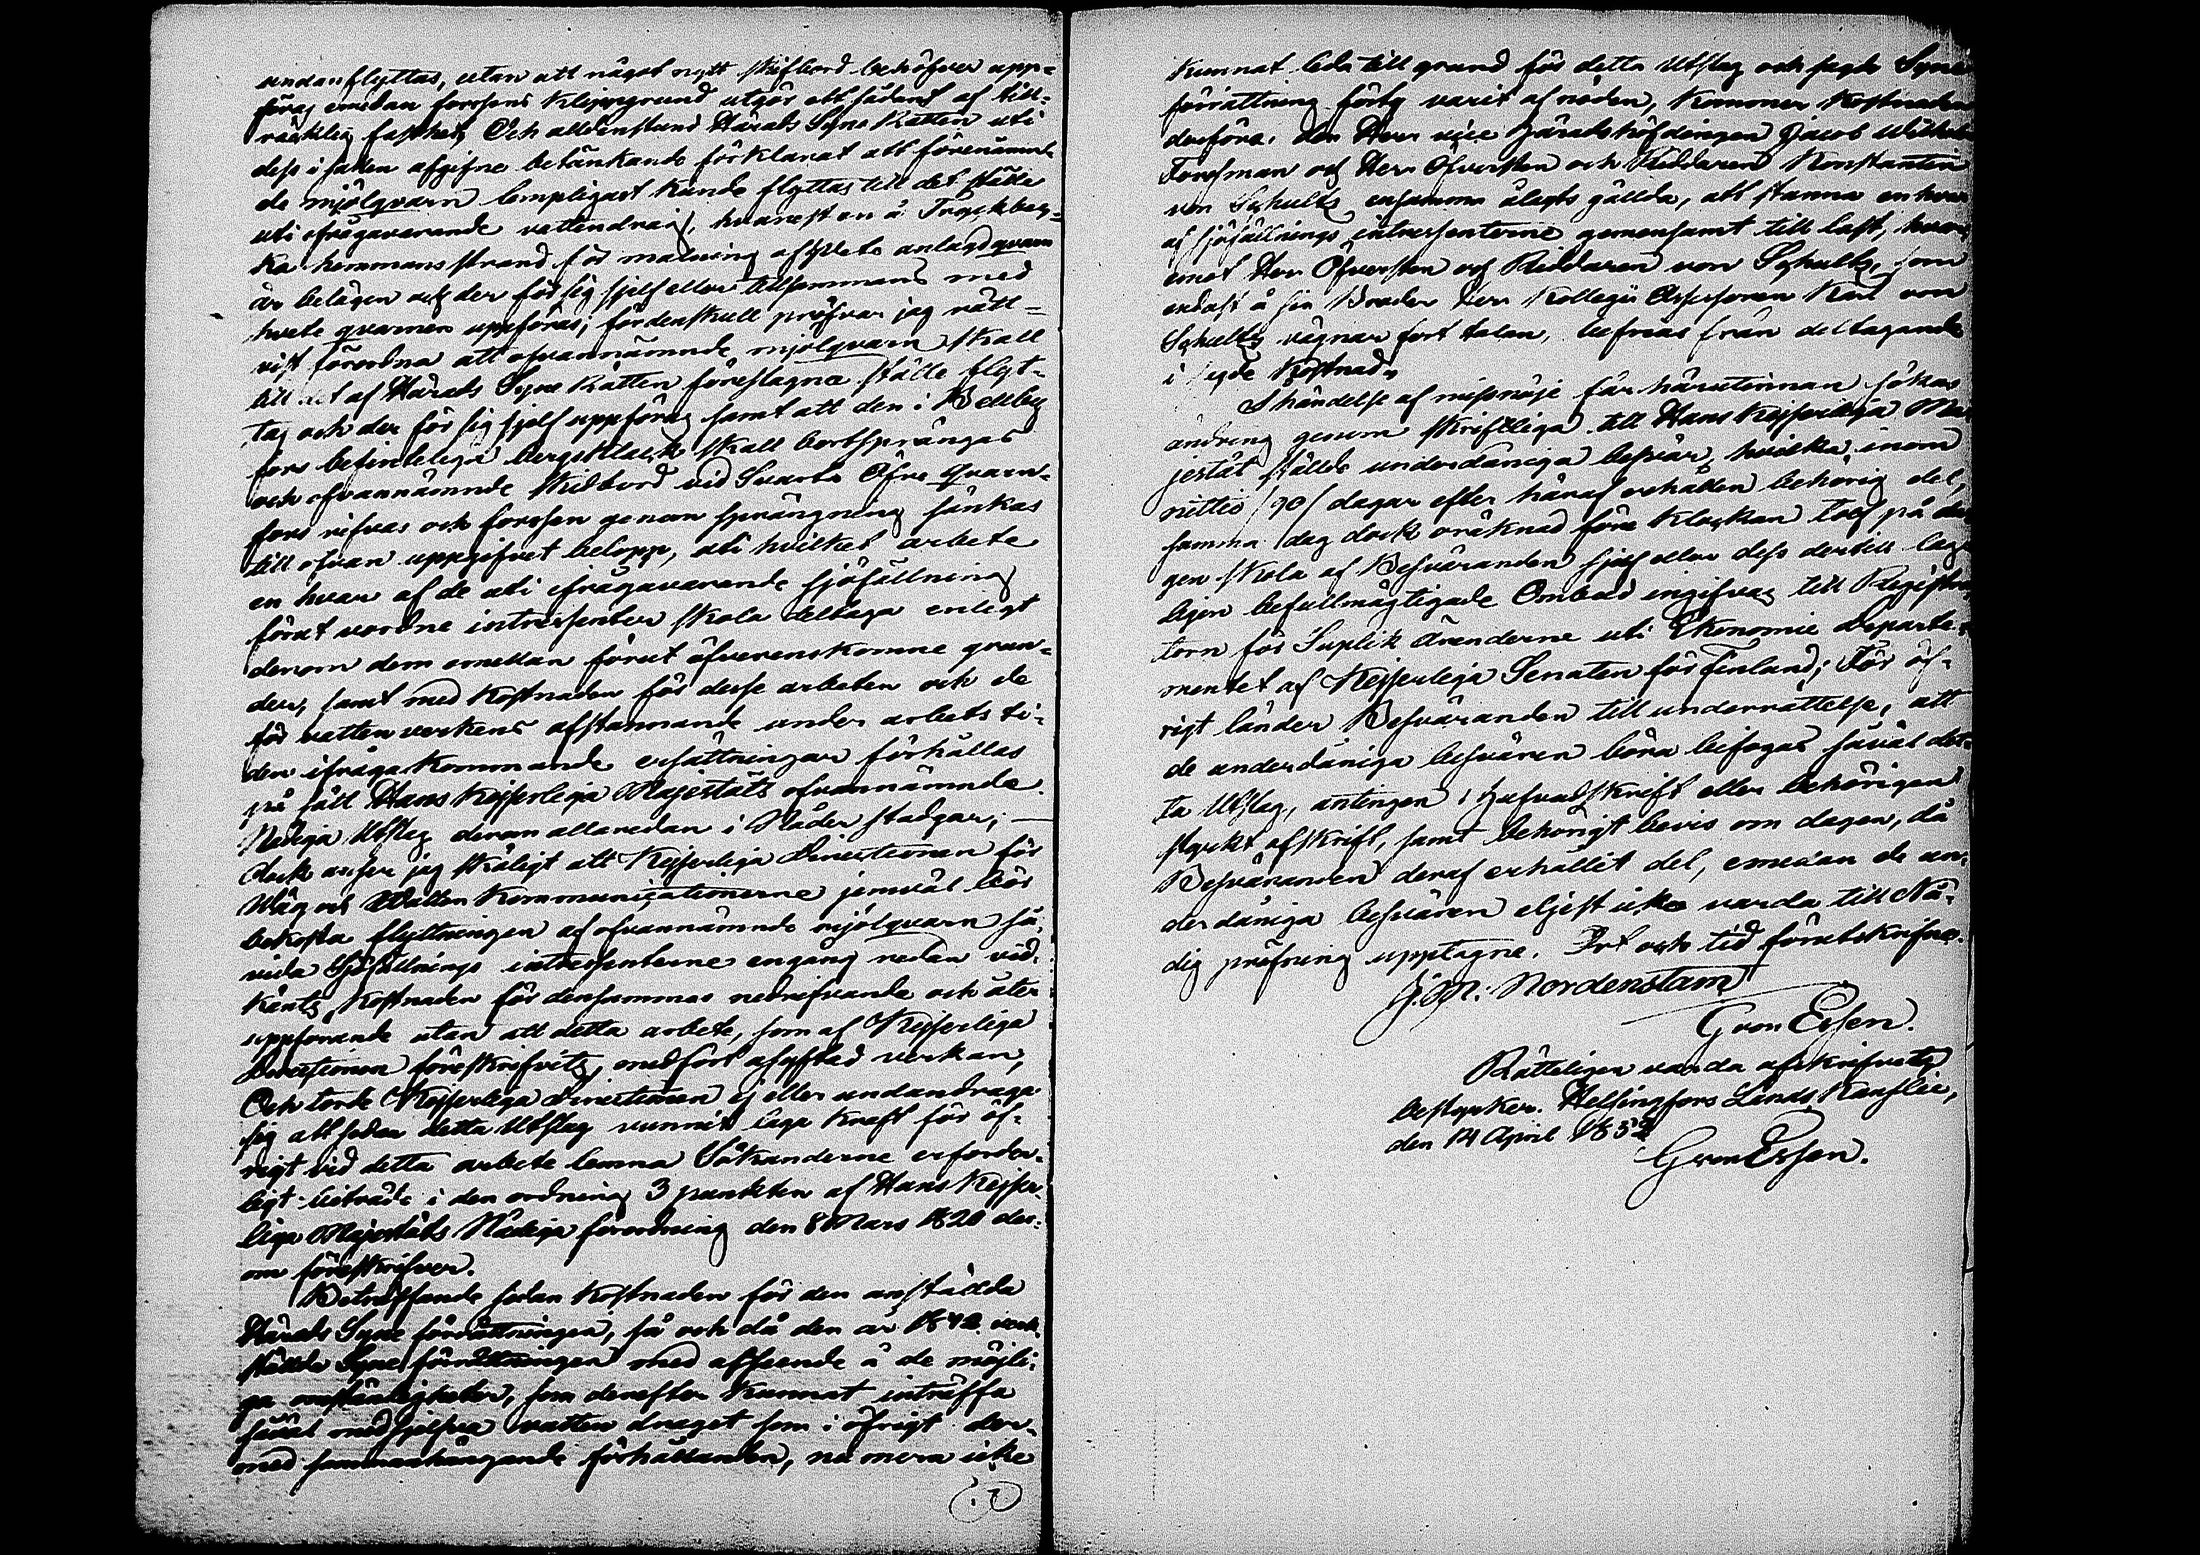 undanflyttas, utan att något nytt skifbord behöfver upp-
föras emedan forssens klippgrund utgör ett sådant af till-
räcklig fasthet, Och alldenstund Härads Syne Rätten uti
dess i saken afgifne betänkande förklarat att förenämn-
de mjölqvarn lempligast kunde flyttas till det ställe
uti ifrågavarande vattendrag, hvarest en å Tryckbac-
ka hemmans strand för malning af hvete anlagd qvarn
är belägen och der för sig sjelf eller tillsammans med
hvete qvarnen uppföras; fördenskull pröfvar jag rätt-
vist förordna att ofvannämnde mjölqvarn skall
till det af Härads Syne Rätten föreslagna ställe flyt-
tas och der för sig sjelf uppföras samt att den i Bellby
fors befindteliga bergsklack skall bortsprängas
och ofvannämnde skidbord vid Svartå Öfre Qvarn-
fors rifvas och forssen genom sprängning sänkas
till ofvan uppgifvet belopp, uti hvilket arbete
en hvar af de uti ifrågavarande sjöfällning
förut vordne intressenter skola deltaga enligt
denom dem emellan förut öfverenskomne grun-
der, samt med kostnaden för desse arbeten och de
för vattenverkens afstannande under arbets ti-
den ifrågakommande ersättningar förhållas
på sätt Hans Kejserliga Majestäts ofvannämnde
Nådiga Utslag derom allaredan i Nåder stadgar;
dock anser jag skäligt att Kejserliga Directionen för
Wäg och Watten Kommunicationerne jemväl bör
bekosta flyttningen af ofvannämnde mjölqvarn så-
vida Sjöfällnings intressenterne engång redan vid-
känts kostnaden för densammas nedrifvande och åter
uppförande utan att detta arbete, som af Kejserliga
Directionen föreskrifvits, medfört afsyftad verkan,
Och torde Kejserliga Directionen ej eller undandraga
sig att sedan detta Utslag vunnit laga kraft för öf-
rigt vid detta arbete lemna Sökanderne erforder-
ligt biträde i den ordning 3 punkten af Hans Kejser-
liga Majestäts Nådiga förordning den 8 Mars 1820 der-
om föreskrifver.
Beträffande sedan kostnaden för den anstälda
Härads Syne förrättningen, så och då den år 1842 verk-
stälda Syne förrättningen med afseende å de möjli-
ga omständigheter, som derefter kunnat inträffa
såväl med sjelfva vatten draget som i öfrigt der-
med sammanhängande förhållanden, nu mera icke
kunnat leda till grund för detta Utslag och sagde Syne
förrättning förty varit af nöden, kommer kostnaden
derföre, den Herr vice Häradshöfdingen Jacob Wilhelm
Forsman och Herr Öfversten och Riddaren Konstantin
von Schultz ensamme ålegts gällda, att stanna en hvar
af sjöfällnings intressenterne gemensamt till last, hvar-
emot Herr Öfversten och Riddaren von Schultz, som
endast å sin Broder Herr Kollegii Assessoren Karl von
Schultz vägnar fört talan, befreas från deltagande
i sagde kostnad.
I händelse af missnöje får häruti sökas
ändring genom skriftliga till Hans Kejserliga Ma-
jestät stälde underdåniga besvär, hvilka inom
nittio /90/ dagar efter häraf erhållen behörig del,
samma dag dock oräknad före klockan tolf på da-
gen skola af Besväranden sjelf eller dess dertill lag-
ligen befullmägtigade Ombud ingifvas till Registra-
torn för Suplik Ärenderne uti Ekonomie Departe-
mentet af Kejserliga Senaten för Finland; För öf-
rigt länder Besväranden till underrättelse, att
de underdåniga besvären böra bifogas såväl det-
ta Utslag, antingen i hufvudskrift eller behörigen
styrkt afskrift, samt behörigt bevis om dagen, då
Besväranden deraf erhållit del, emedan de un-
derdåniga besvären eljest icke varda till Nå-
dig pröfning upptagne. Ort och tid förutskrifne.
J. M. Nordenstam
G von Essen.
Rätteligen vara afskrifvet
bestyrker. Helsingfors Lands Kanslie,
den 14 April 1852
G von Essen.